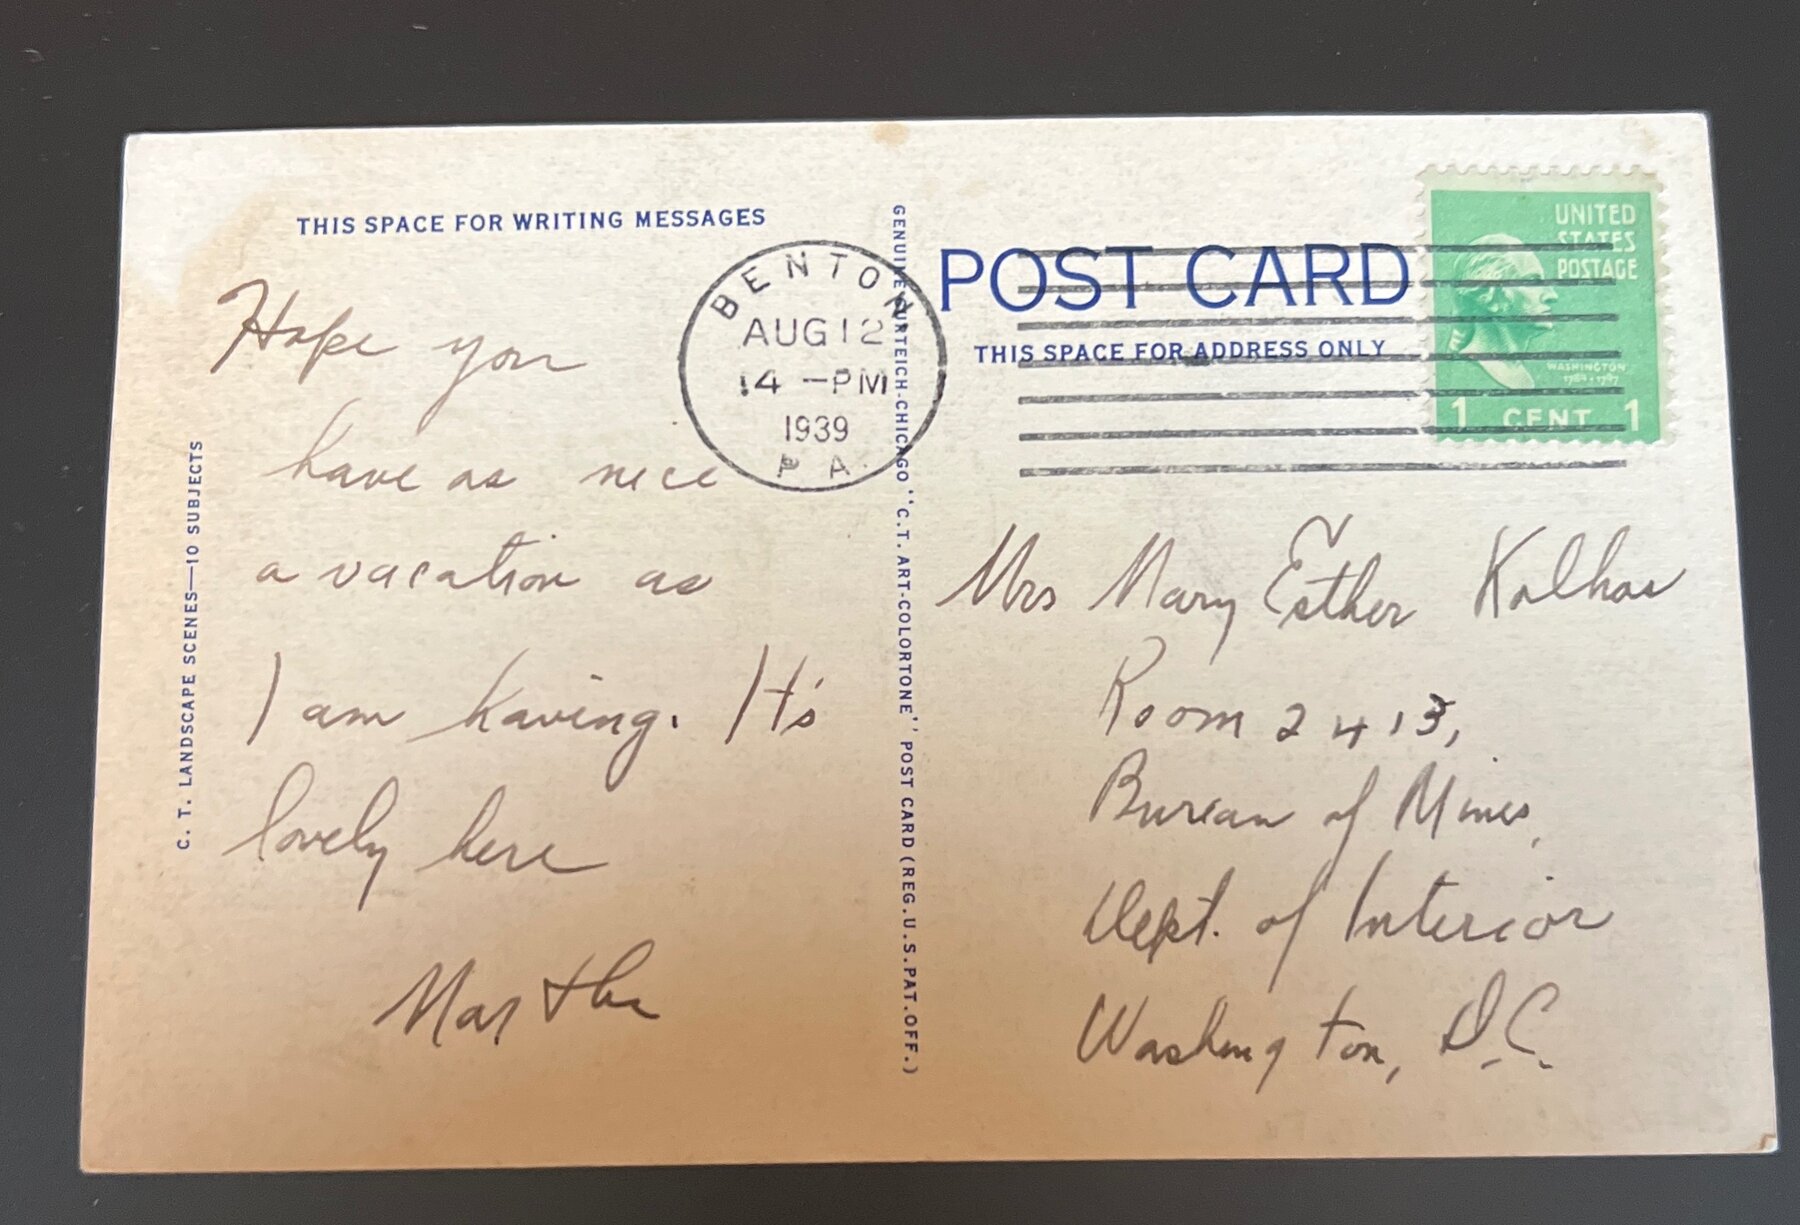 THIS SPACE FOR WRITING MESSAGES
Hope you
have as nice
a vacation as
I am having. It's
lovely here
Martha
C. T. LANDSCAPE SCENES—10 SUBJECTS
BENTON
AUG 12
4 —PM
1939
PA.
GENUINE CURTEICH-CHICAGO "C.T. ART-COLORTONE" POST CARD (REG. U.S. PAT. OFF.)
POST CARD
THIS SPACE FOR ADDRESS ONLY
UNITED
STATES
POSTAGE
WASHINGTON
1789-1797
1 CENT 1
Mrs Mary Esther
Room 2413,
Bureau of Mines,
Dept. of Interior
Washington, D.C.